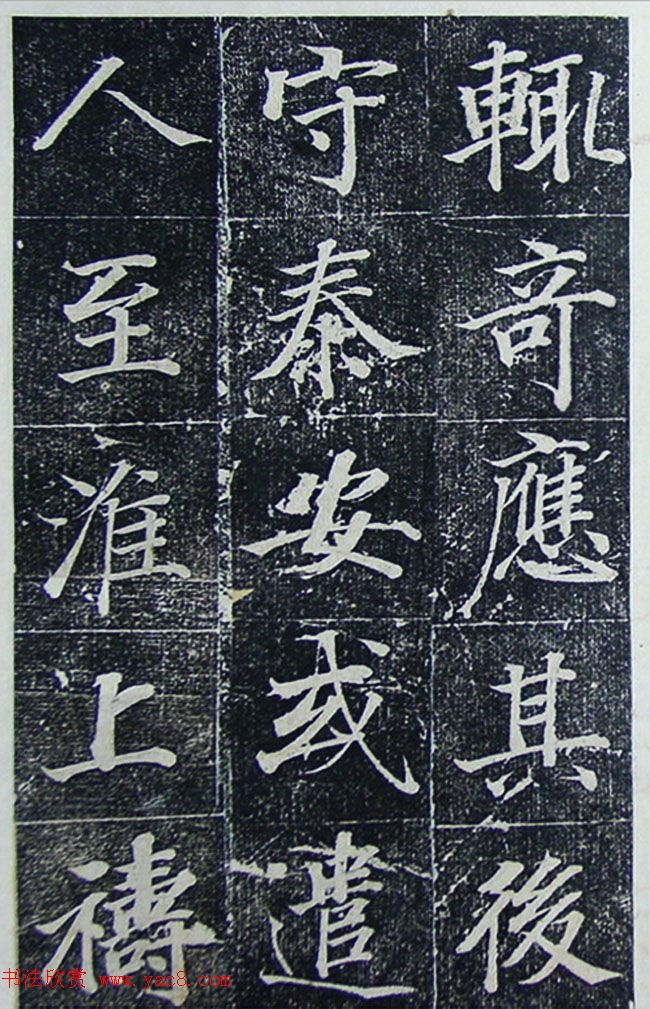 輒奇應其後
守泰安或遣
人至淮上禱
书法欣赏 www.yac8.com